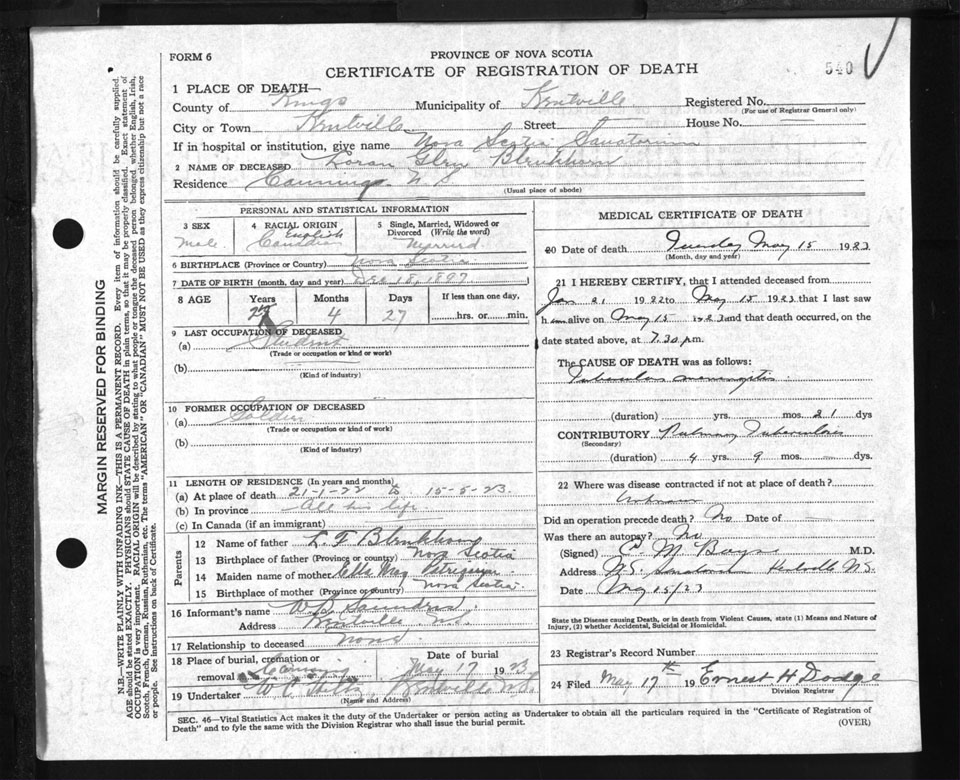 FORM 6
PROVINCE OF NOVA SCOTIA
CERTIFICATE OF REGISTRATION OF DEATH
540
1 PLACE OF DEATH—
County of Kings Municipality of Kentville Registered No.
(For use of Registrar General only)
City or Town Kentville Street — House No. —
If in hospital or institution, give name Nova Scotia Sanatorium
2 NAME OF DECEASED Loran Glen Blenkhorn
Residence Canning N.S.
(Usual place of abode)
PERSONAL AND STATISTICAL INFORMATION
3 SEX Male
4 RACIAL ORIGIN English Canadian
5 Single, Married, Widowed or Divorced (Write the word) Married
6 BIRTHPLACE (Province or Country) Nova Scotia
7 DATE OF BIRTH (month, day and year) Dec 18, 1897
8 AGE Years 25 Months 4 Days 27 If less than one day, hrs. or min.
9 LAST OCCUPATION OF DECEASED
(a) Student
(Trade or occupation or kind or work)
(b)
(Kind of industry)
10 FORMER OCCUPATION OF DECEASED
(a) Soldier
(Trade or occupation or kind or work)
(b)
(Kind of industry)
11 LENGTH OF RESIDENCE (In years and months)
(a) At place of death 21-1-22 to 15-5-23.
(b) In province All his life
(c) In Canada (if an immigrant)
Parents
12 Name of father L. F. Blenkhorn
13 Birthplace of father (Province or country) Nova Scotia
14 Maiden name of mother May
15 Birthplace of mother (Province or country) Nova Scotia
16 Informant's name Saunders
Address Kentville N.S.
17 Relationship to deceased None
18 Place of burial, cremation or removal Canning Date of burial May 17 1923
19 Undertaker Kentville N.S.
(Name and Address)
MEDICAL CERTIFICATE OF DEATH
20 Date of death Tuesday May 15 1923
(Month, day and year)
21 I HEREBY CERTIFY, that I attended deceased from
Jan 21 1922 to May 15 1923 that I last saw
h im alive on May 15 1923 and that death occurred, on the
date stated above, at 7.30 p.m.
The CAUSE OF DEATH was as follows:
Tubercular meningitis
(duration) yrs. mos. 21 dys
CONTRIBUTORY Pulmonary Tuberculosis
(Secondary)
(duration) 4 yrs. 9 mos. — dys
22 Where was disease contracted if not at place of death?
Unknown
Did an operation precede death? No Date of —
Was there an autopsy? No
(Signed) C. M. Bayne M.D.
Address N.S. Sanatorium Kentville N.S.
Date May 15/23
State the Disease causing Death, or in death from Violent Causes, state (1) Means and Nature of Injury, (2) whether Accidental, Suicidal or Homicidal.
23 Registrar's Record Number
24 Filed May 17th 19 Ernest H Dodge
Division Registrar
SEC. 46—Vital Statistics Act makes it the duty of the Undertaker or person acting as Undertaker to obtain all the particulars required in the "Certificate of Registration of
Death" and to fyle the same with the Division Registrar who shall issue the burial permit.
(OVER)
MARGIN RESERVED FOR BINDING
N.B.—WRITE PLAINLY WITH UNFADING INK—THIS IS A PERMANENT RECORD. Every item of information should be carefully supplied.
AGE should be stated EXACTLY. PHYSICIANS should STATE CAUSE OF DEATH in plain terms, so that it may be properly classified. Exact statement of
OCCUPATION is very important. RACIAL ORIGIN will be described by stating to what people or tongue the deceased person belonged, whether English, Irish,
Scotch, French, German, Russian, Ruthenian, etc. The terms "AMERICAN" OR "CANADIAN" MUST NOT BE USED as they express citizenship but not a race
or people. See instructions on back of Certificate.